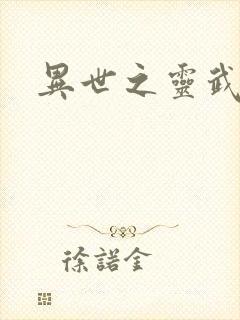 異世之靈武
徐諾金